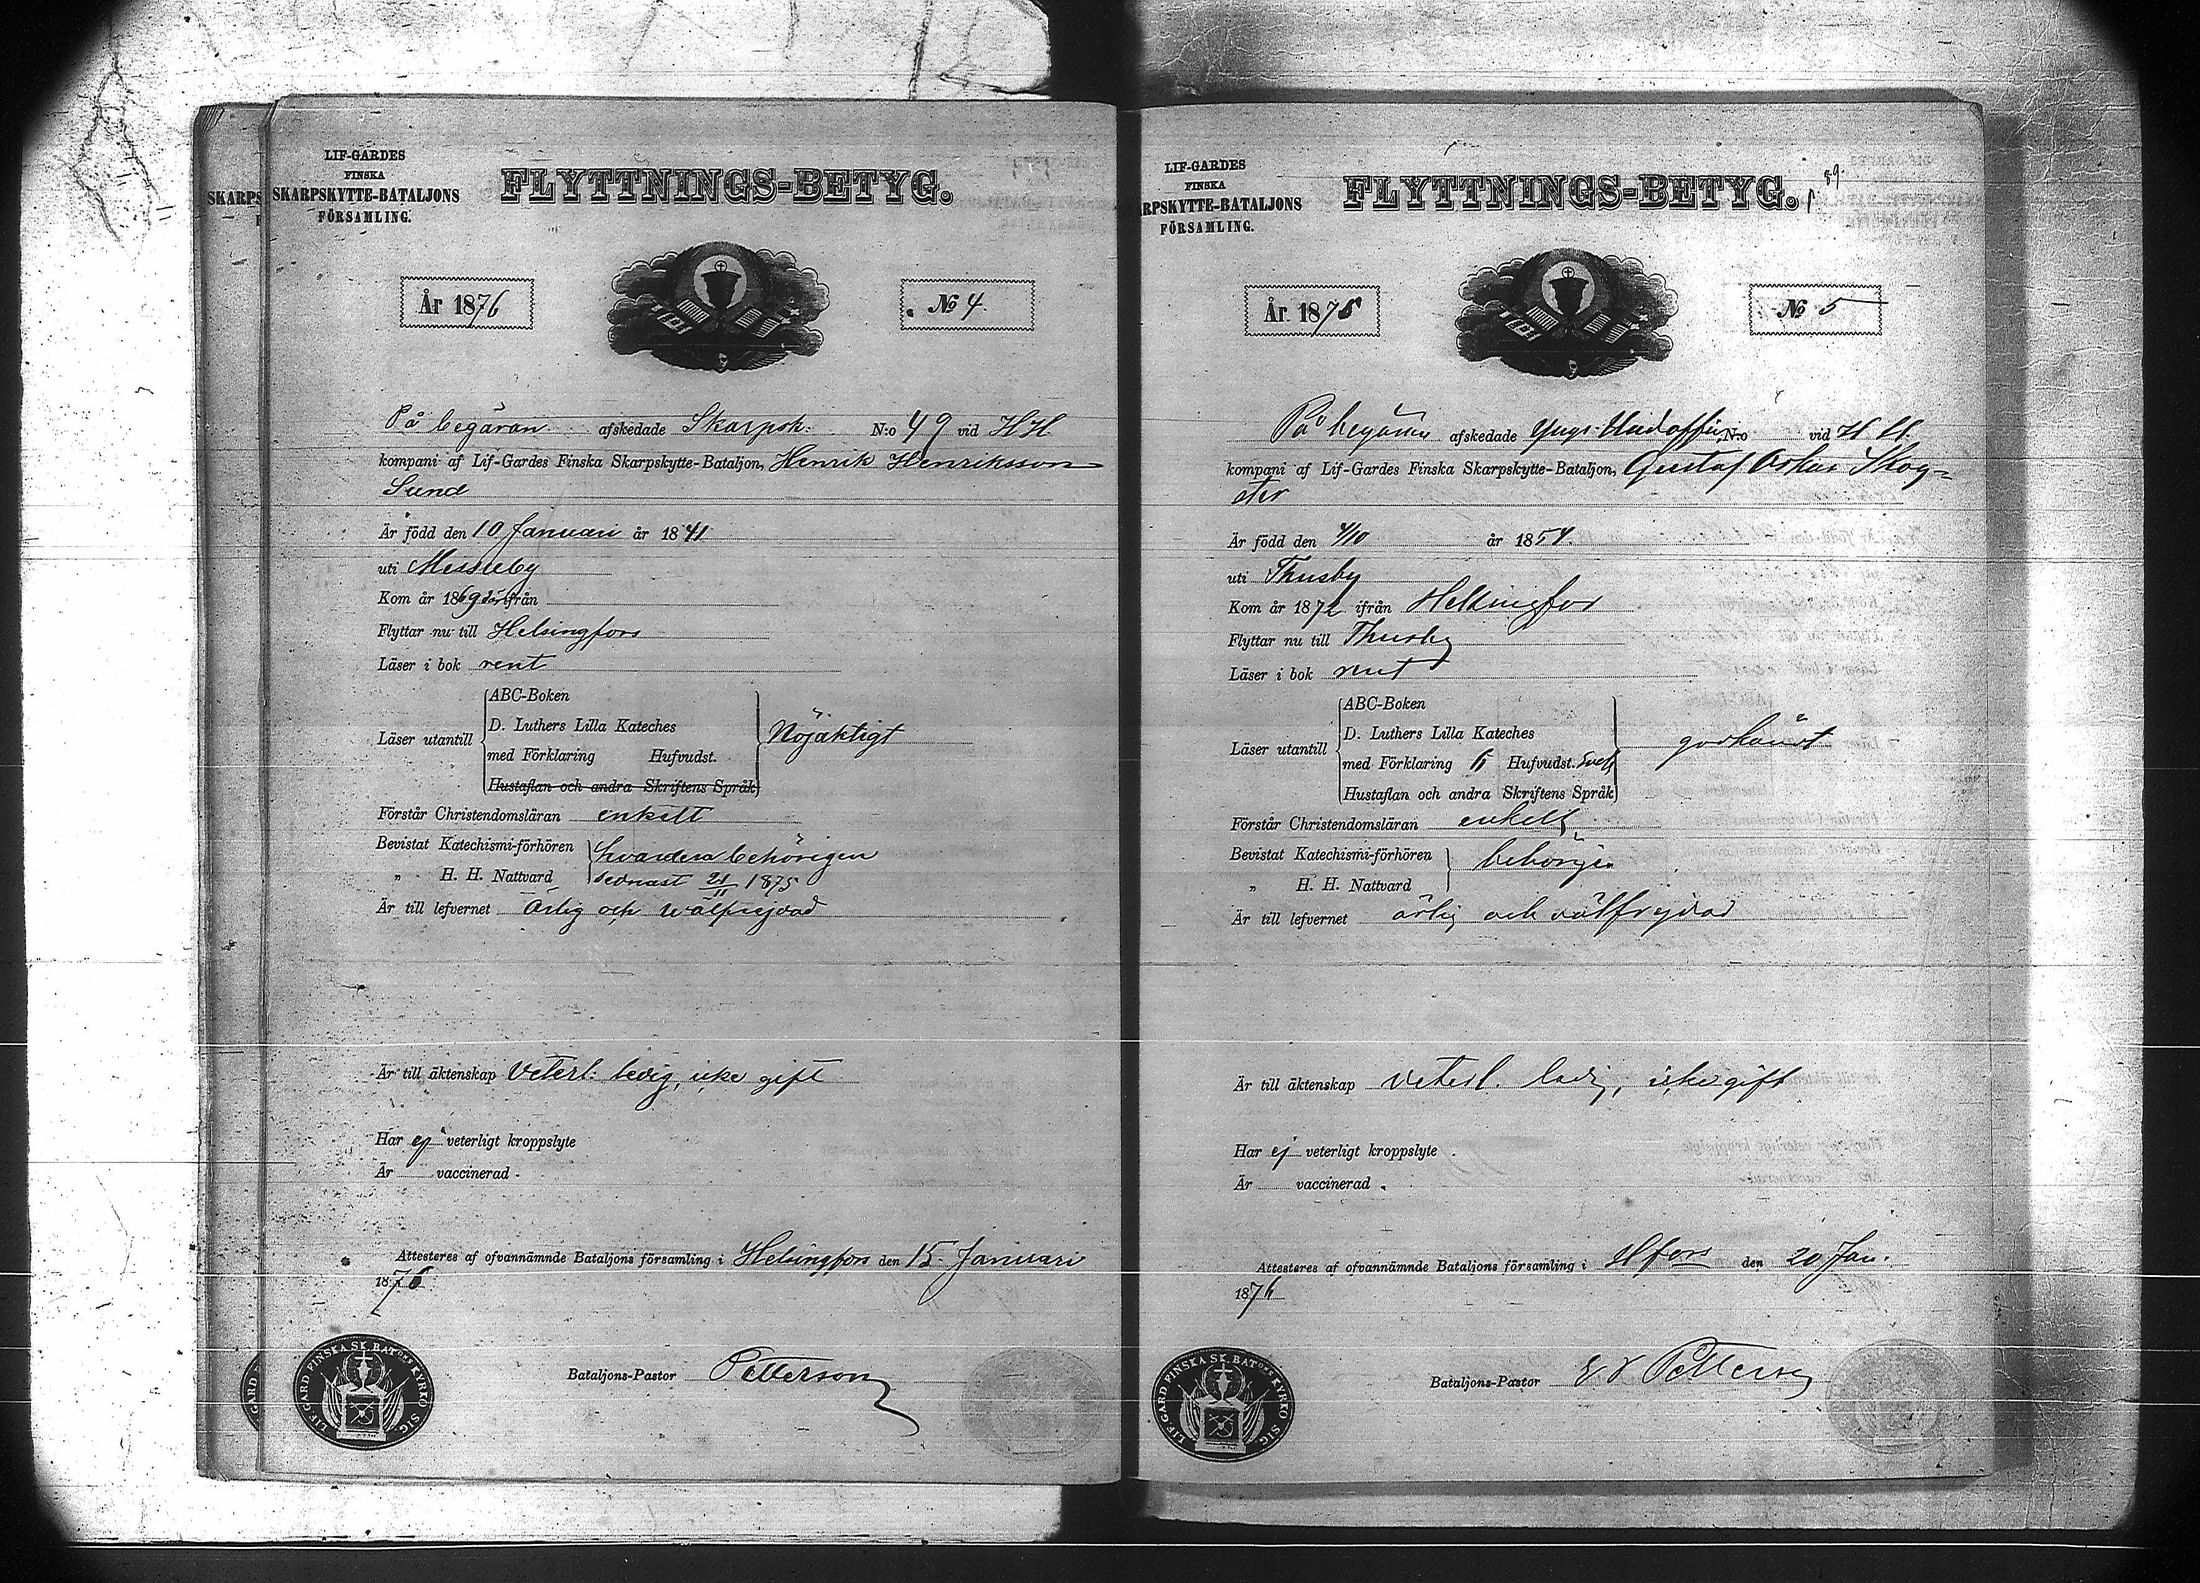 LIF-GARDES
FINSKA
SKARPSKYTTE-BATALJONS
FÖRSAMLING.
FLYTTNINGS-BETYG.
År 1876
No 4.
På begäran afskedade Skarpsk: N:o 49 vid HH.
kompani af Lif-Gardes Finska Skarpskytte-Bataljon, Henrik Henriksson
Sund
Är född den 10 Januari år 1841
uti Messuby
Kom år 1869 ifrån
Flyttar nu till Helsingfors
Läser i bok rent
ABC-Boken
D. Luthers Lilla Kateches
Läser utantill Nöjaktigt
med Förklaring Hufvudst.
Hustaflan och andra Skriftens Språk
Förstår Christendomsläran enkelt
Bevistat Katechismi-förhören hvardera behörigen
„ H. H. Nattvard sednast 21/11 1875
Är till lefvernet Ärlig och wälfrejdad
Är till äktenskap Veterl: ledig, icke gift
Har ej veterligt kroppslyte
Är vaccinerad
Attesteres af ofvannämnde Bataljons församling i Helsingfors den 15 Januari
1876
Bataljons-Pastor Petterson
LIF.GARD FINSKA SK. BATONS KYRKO SIG.
LIF-GARDES
FINSKA
RPSKYTTE-BATALJONS
FÖRSAMLING.
FLYTTNINGS-BETYG.
89.
År 1876
No 5
På begäran afskedade N:o vid H H.
kompani af Lif-Gardes Finska Skarpskytte-Bataljon, Gustaf Oskar Skog=
ster
Är född den 4/10 år 1854.
uti Thusby
Kom år 1872 ifrån Helsingfors
Flyttar nu till Thusby
Läser i bok rent
ABC-Boken
D. Luthers Lilla Kateches
Läser utantill godkändt
med Förklaring Hufvudst.
Hustaflan och andra Skriftens Språk
Förstår Christendomsläran enkelt
Bevistat Katechismi-förhören behörigen
„ H. H. Nattvard
Är till lefvernet ärlig och välfrejdad
Är till äktenskap veterl. ledig, icke gift
Har ej veterligt kroppslyte
Är vaccinerad
Attesteres af ofvannämnde Bataljons församling i Hfors den 20 Jan.
1876
Bataljons-Pastor Petterson
LIF.GARD FINSKA SK. BATONS KYRKO SIG.